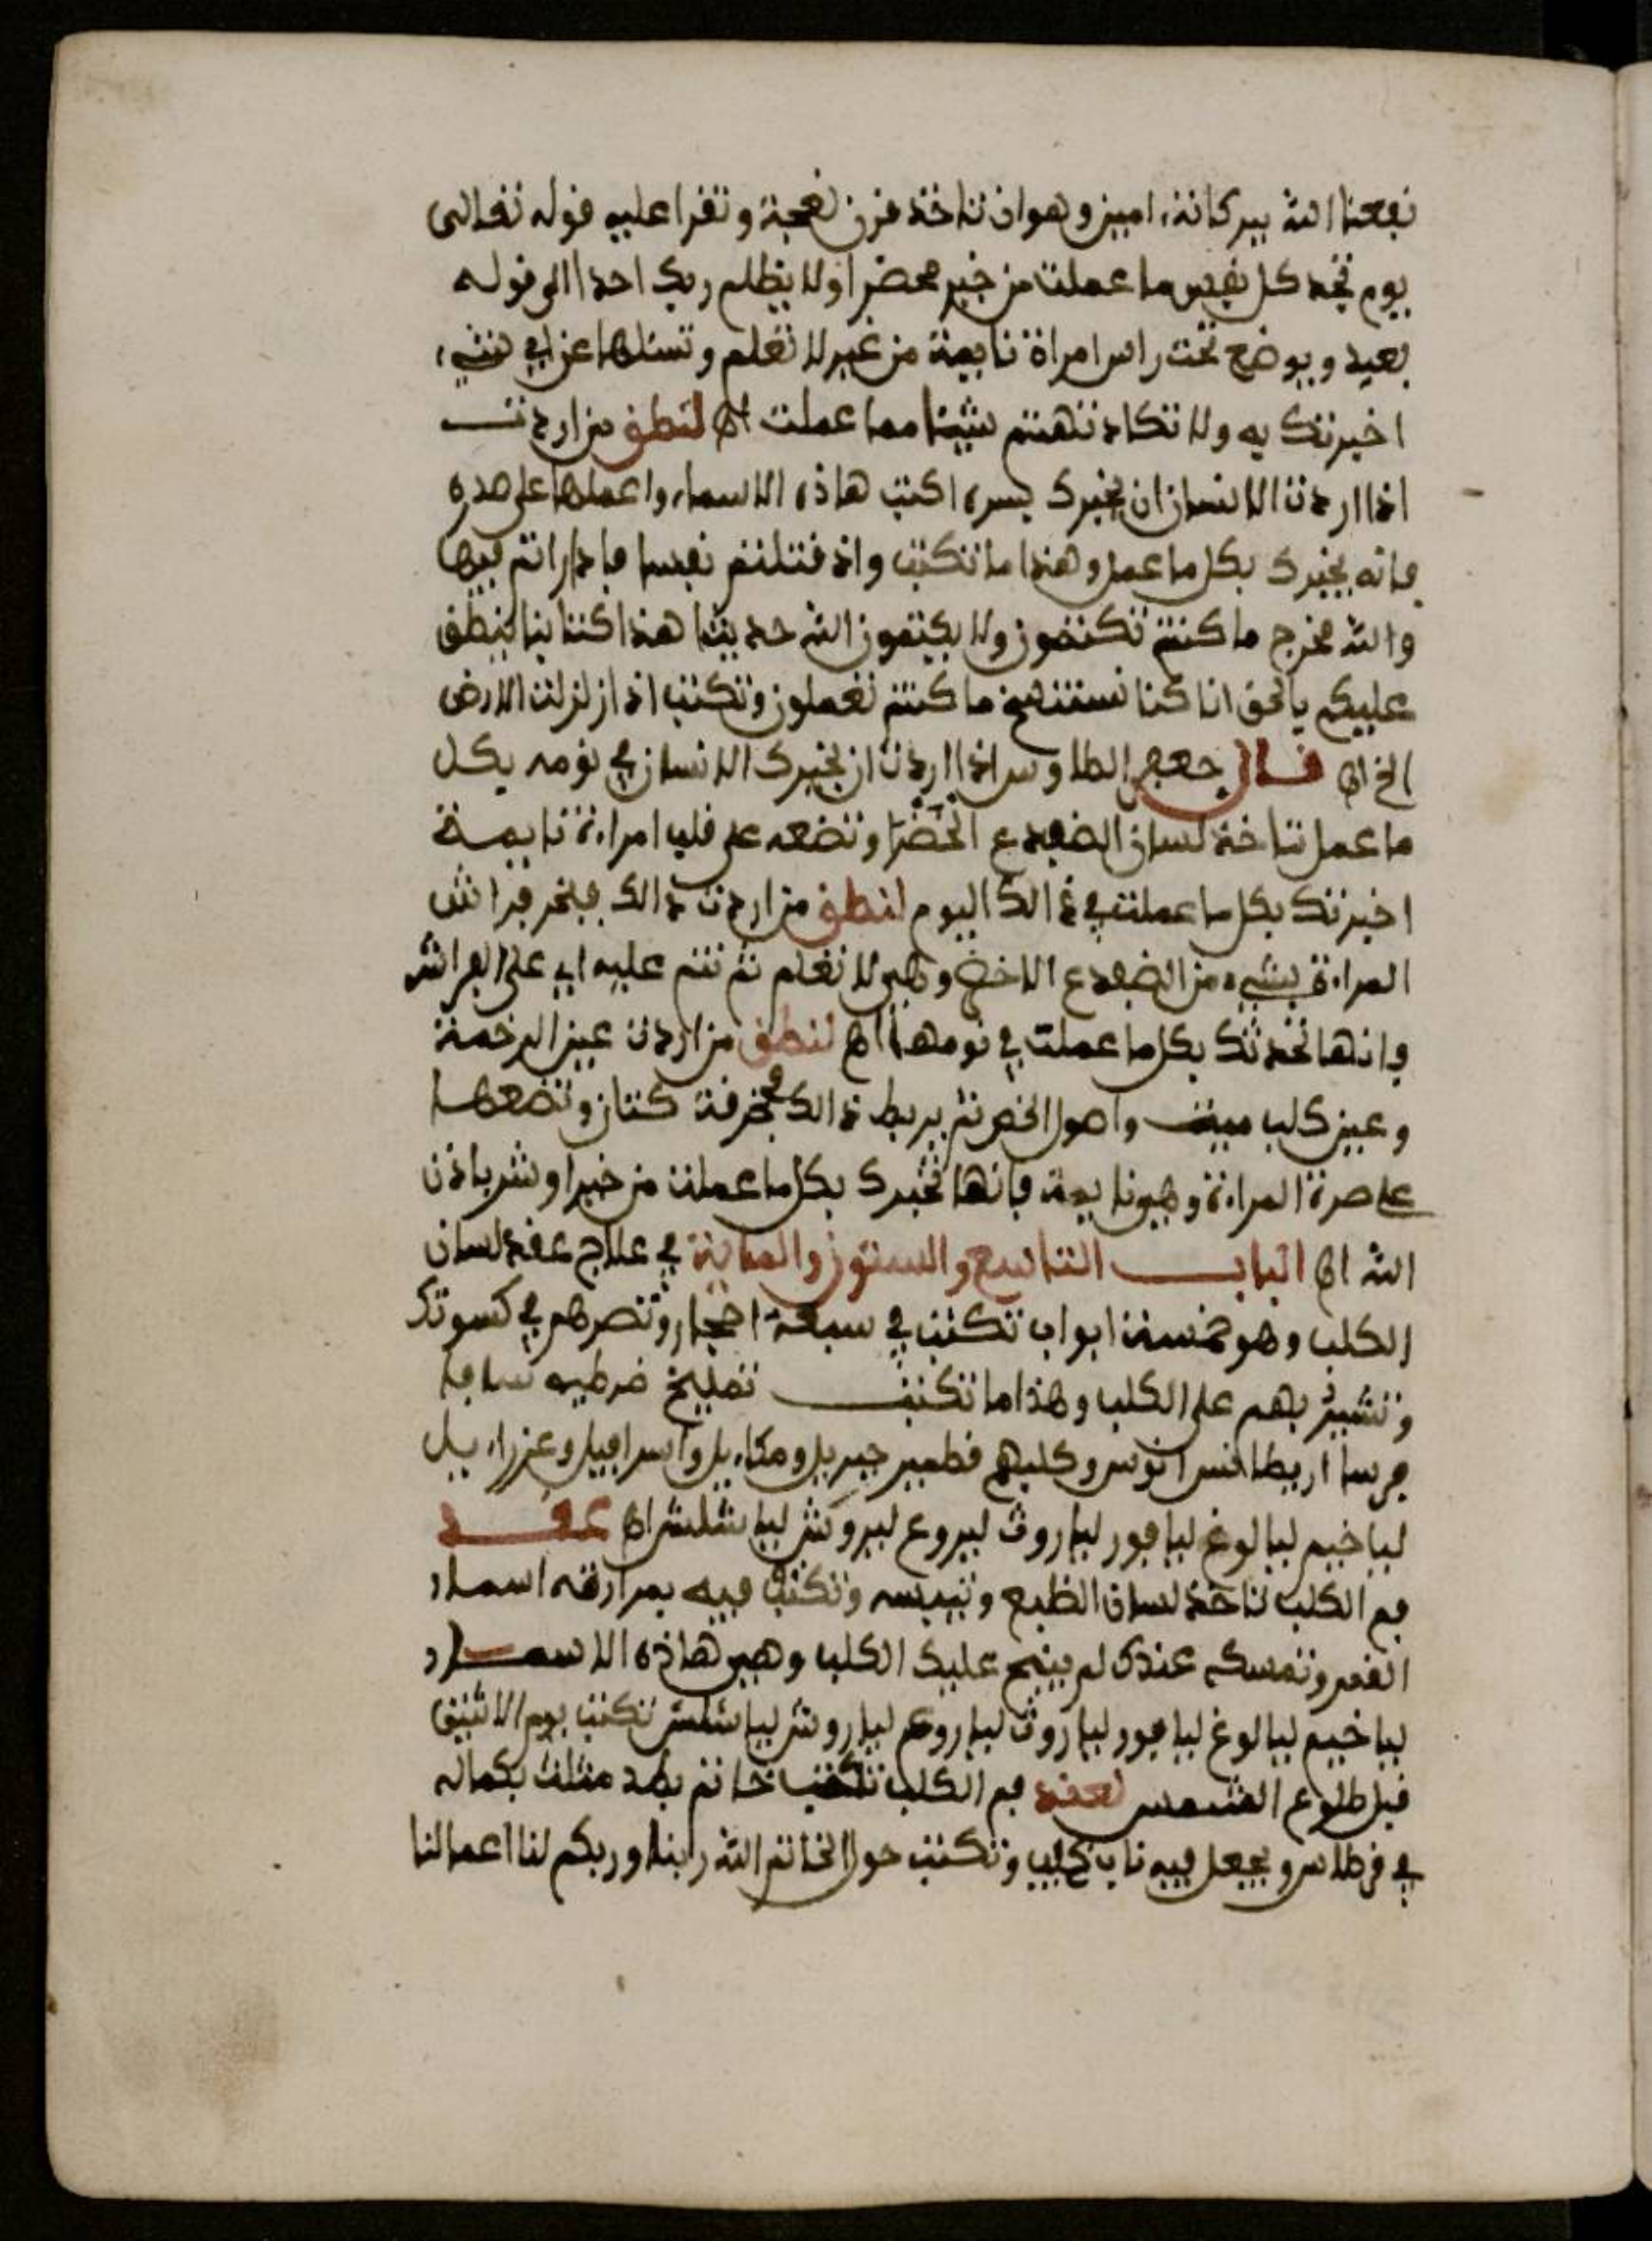 نفعنا الله ببركاته امين وهو ان تاخذ قرن نعجة وتقرا عليه قوله تعالى
يوم تجد كل نفس ما عملت من خير محضرا ولا يظلم ربك احدا الى قوله
بعيد ويوضع تحت راس امراة نايمة من غير لا تعلم وتسئلها عن اي شيء
اخبرتك به ولا تكاد تهتم شيئا مما عملت اه لنطق من اردت
اذا اردت الانسان ان يخبرك بسره اكتب هاذه الاسماء واعملها على صدره
فانه يخبرك بكل ما عمل وهذا ما تكتب واذ قتلتم نفسا فادارأتم فيها
والله مخرج ما كنتم تكتمون ولا يكتمون الله حديثا هذا كتابنا ينطق
عليكم بالحق انا كنا نستنسخ ما كنتم تعملون وتكتب اذا زلزلت الارض
الخ اه قال جعفر الطاوس اذا اردت ان يخبرك الانسان في نومه بكل
ما عمل تاخذ لسان الضفدع الخضرا وتضعه على قلب امراءة نايمة
اخبرتك بكل ما عملت في ذالك اليوم لنطق من اردت ذالك فبخر فراش
المراءة بشيء من الضفدع الاخضر وهي لا تعلم ثم تنم عليه اي على الفراش
فانها تحدثك بكل ما عملت في نومها اه لنطق من اردت عين الرخمة
وعين كلب ميت واصول الخص ثم يربط ذالك في خرقة كتان وتضعها
على صرة المراءة وهي نايمة فانها تخبرك بكل ما عملت من خير او شر باذن
الله اه الباب التاسع والستون والماية في علاج عقد لسان
الكلب وهو خمسة ابواب تكتب في سبعة احجار وتصرهم في كسوتك
وتشير بهم على الكلب وهذا ما تكتب تمليخ ضرطيه سافا
فرسا اربطانس انوس وكلبهم قطمير جبريل ومكاءيل واسرافيل وعزراءيل
ليا خيم ليا لوغ ليا فور ليا روث ليروع ليروش ليا شلش اه عقد
فم الكلب تاخذ لسان الظبع وتيبسه وتكتب فيه بمرارته اسماء
القمر وتمسكه عندك لم ينبح عليك الكلب وهي هاذه الاسماء
ليا خيم ليا لوغ ليا فور ليا روث ليا روع ليا روش ليا شلش تكتب يوم الاثنين
قبل طلوع الشمس لعقد فم الكلب تكتب خاتم بطد مثلث بكماله
في قرطاس ويجعل فيه ناب كلب وتكتب حول الخاتم الله ربنا وربكم لنا اعمالنا